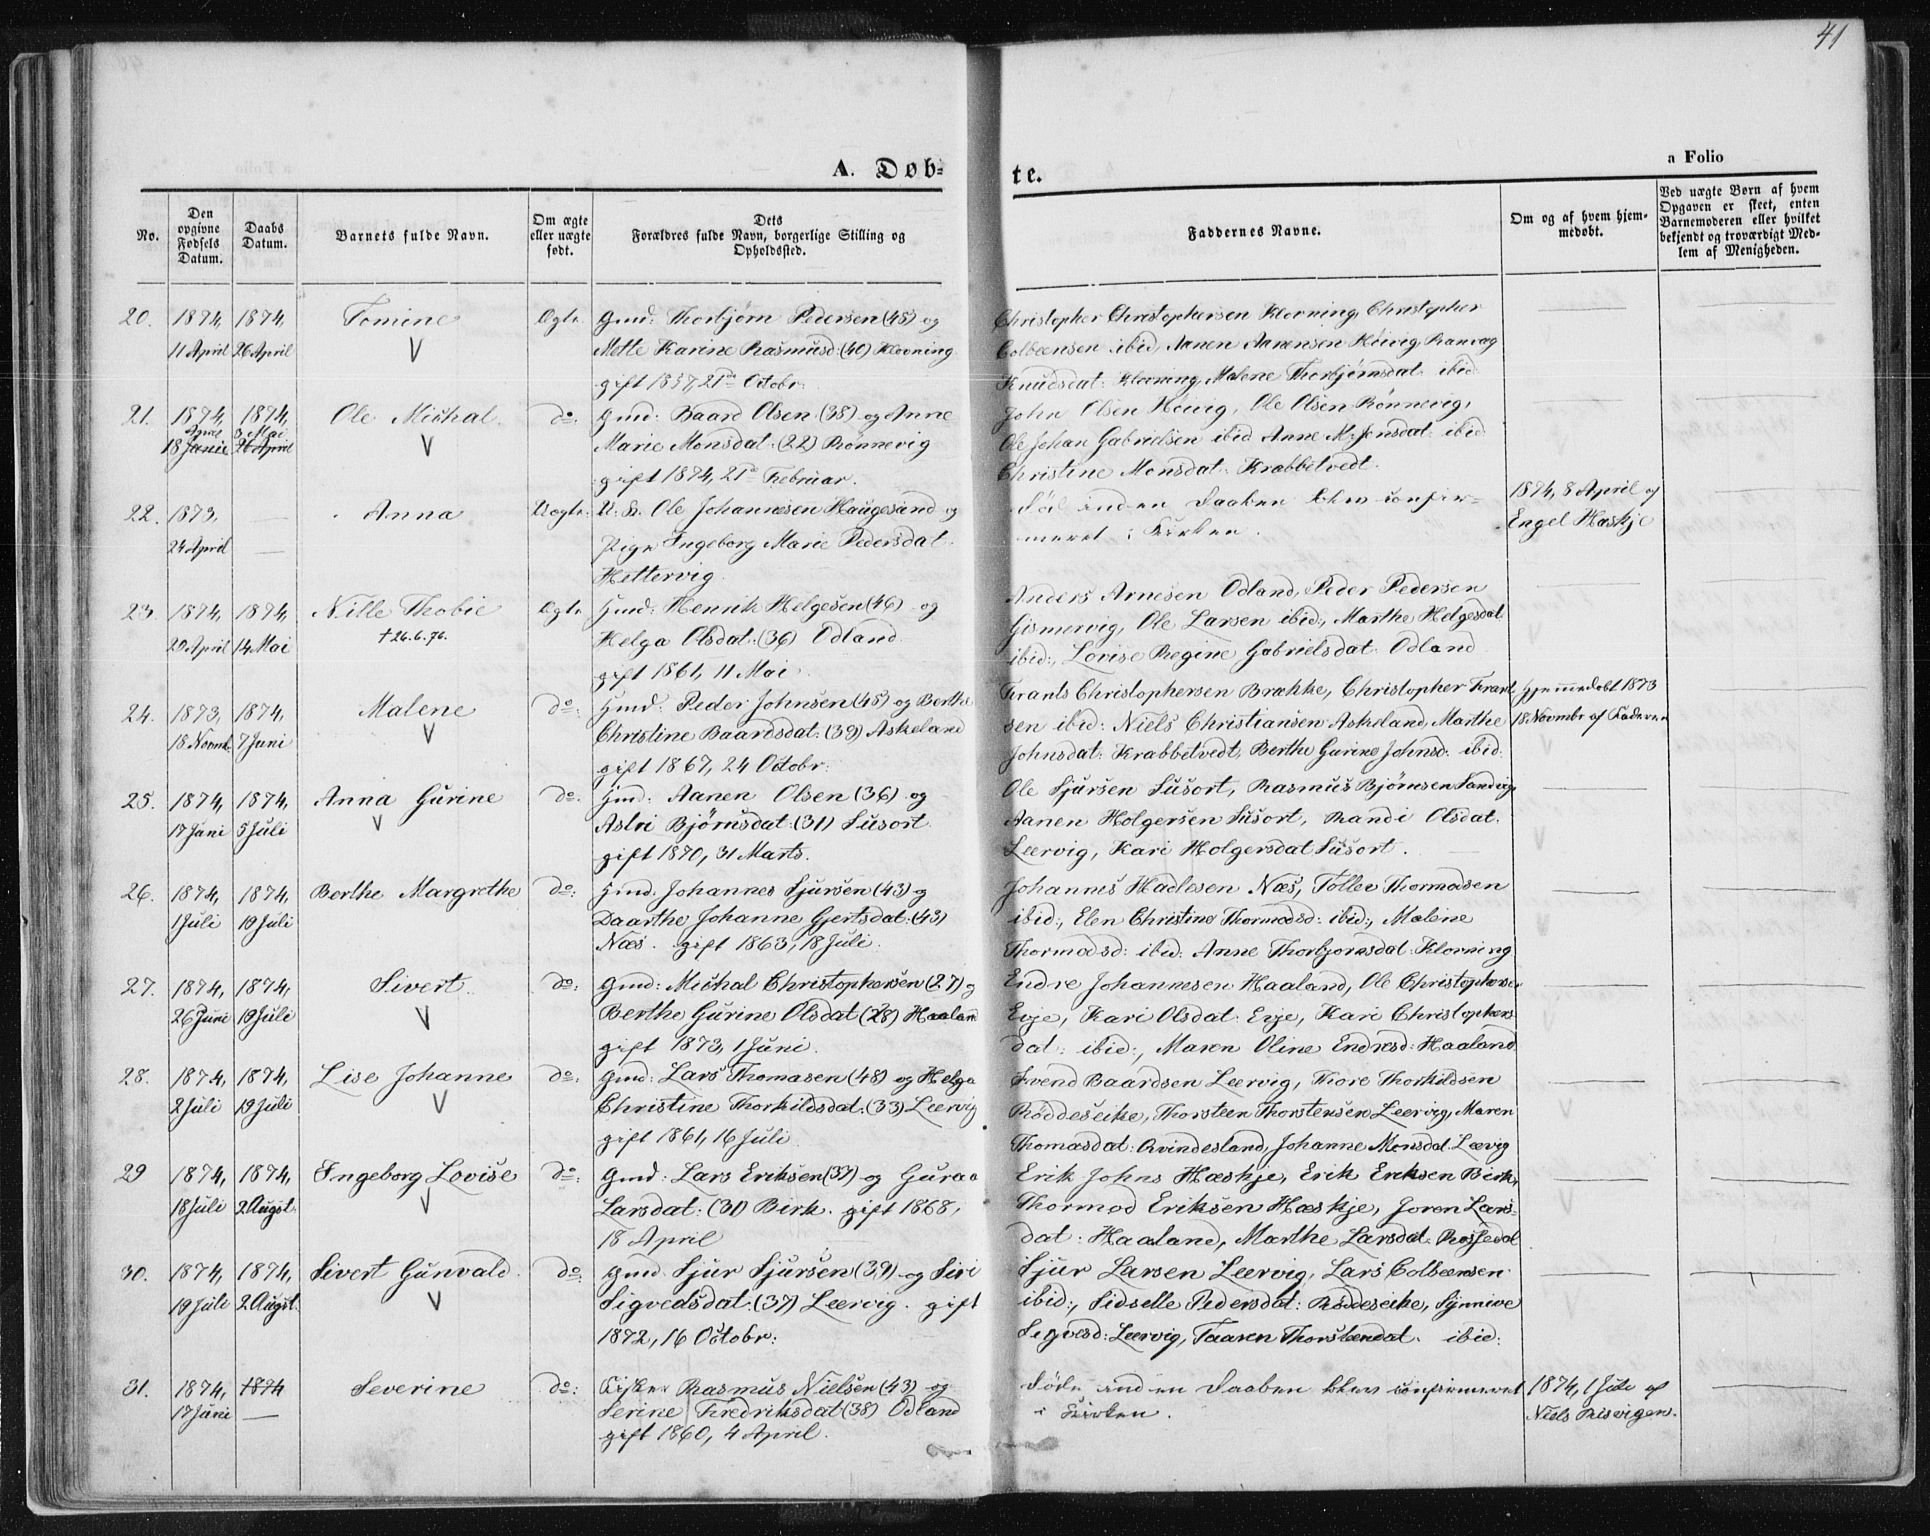 41
A. Døb-
te.
a Folio
No.
Den opgivne Fødsels Datum.
Daabs Datum.
Barnets fulde Navn.
Om ægte eller uægte født.
Dets
Forældres fulde Navn, borgerlige Stilling og
Opholdssted.
Faddernes Navne.
Om og af hvem hjem-
medøbt.
Ved uægte Børn af hvem
Opgaven er skeet, enten
Barnemoderen eller hvilket
bekjendt og troværdigt Med-
lem af Menigheden.
20. 1874, 1874, Tomine Ægte Gmd: Thorbjørn Pedersen (45) og
11 April 26 April Mette Karine Rasmusd: (40) Klovning
gift 1857, 21de Octobr:
Christopher Christophersen Klovning, Christopher
Colbeensen ibid, Aanen Aanensen Høivig, Ranvag
Knudsdat: Klovning, Malene Thorbjørnsdat: ibid
21. 1874, 1874, Ole Michal do: Gmd: Baard Olsen (38) og Anne
April 3 Mai
18 Junie 26 April Marie Monsdat: (22) Rønnevig
gift 1874, 21de Februar.
John Olsen Høivig, Ole Olsen Rønnevig,
Ole Johan Gabrielsen ibid Anne M. Jonsdat: ibid
Christine Monsdat: Krabbetvedt.
22. 1873, — Anna Uægte U. K. Ole Johannesen Haugesand og
24 April — Pige Ingeborg Marie Pedersdat:
Hettervig.
Død inden Daaben blev confir-
meret i Kirken.
1874, 8 April af
Engel Hæskje
23. 1874, 1874, Nille Thobie Ægte Hmd: Henrik Helgesen (46) og
20 April 14 Mai † 26.6.76. Helga Olsdat: (36) Odland
gift 1861, 11 Mai
Anders Arnesen Odland, Peder Pedersen
Gismervig, Ole Larsen ibid:, Marthe Helgesdat
ibid:, Lovise Regine Gabrielsdat: Odland
24. 1873, 1874, Malene do: Hmd: Peder Johnsen (45) og Berthe
18 Novmb. 7 Juni Christine Baardsdat: (39) Askeland
gift 1867, 24 Octobr:
Frants Christophersen Brække, Christopher Frant-
sen ibid: Niels Christiansen Askeland, Marthe
Johnsdat: Krabbetvedt, Berthe Gurine Johnsd: ibid:
Hjemmedøbt 1873
18 Novmbr af Faderen
25. 1874, 1874, Anna Gurine do: Hmd: Aanen Olsen (36) og
17 Juni 5 Juli Astri Bjørnsdat: (31) Susort
gift 1870, 31 Marts.
Ole Sjursen Susort, Rasmus Bjørnsen Sandvig
Aanen Holgersen Susort, Randi Olsdat.
Leervig, Kari Holgersdat Susort.
26. 1874, 1874, Berthe Margrethe do: Hmd: Johannes Sjursen (43) og
1 Juli 19 Juli Daarthe Johanne Gjertsdat: (43)
Næs. gift 1863, 18 Juli.
Johannes Hadlesen Næs, Tollev Thormodsen
ibid:, Elen Christine Thormodsd: ibid:, Malene
Thormodsd: ibid: Anne Thorbjornsdat: Klovning
27. 1874, 1874, Sivert. do: Gmd: Michal Christophersen (27) og
26 Juni 19 Juli Berthe Gurine Olsdat (28) Haaland
gift 1873, 1 Juni.
Endre Johannesen Haaland, Ole Christophersen
Evje, Kari Olsdat: Evje, Kari Christophers-
dat: ibid:, Maren Oline Endresd: Haaland
28. 1874, 1874, Lise Johanne do: Gmd: Lars Thomasen (48) og Helga
2 Juli 19 Juli Christine Thorkildsdat: (33) Leervig
gift 1861, 16 Juli
Svend Baardsen Leervig, Thore Thorkildsen
Røddeseike, Thorsteen Thorstensen Leervig, Maren
Thomasdat: Qvindesland, Johanne Monsdat Leervig
29 1874, 1874, Ingeborg Lovise do: Gmd: Lars Eriksen (37) og Guraa
18 Juli 2 Augst. Larsdat: (31) Birk. gift 1868,
18 April
Erik Johns Hæskje, Erik Eriksen Birk,
Thormod Eriksen Hæskje, Joren Lars-
dat: Haaland, Marthe Larsdat: Rossedal
30. 1874, 1874, Sivert Gunvald. do: Gmd: Sjur Sjursen (39) og Siri
19 Juli 2 Augst. Sigvedsdat: (37) Leervig. gift
1872, 16 Octobr:
Sjur Larsen Leervig, Lars Colbeensen
ibid:, Sidselle Pedersdat: Røddeseike, Synnive
Segvesd: Leervig, Taaren Thorstendat: ibid:
31. 1874, 1874 Severine do: Fisker Rasmus Nielsen (43) og
17 Juni — Serine Fredriksdat (38) Odland
gift 1860, 4 April.
Døde inden Daaben blev confirmeret
i Kirken.
1874, 1 Juli af
Niels Risvigen.